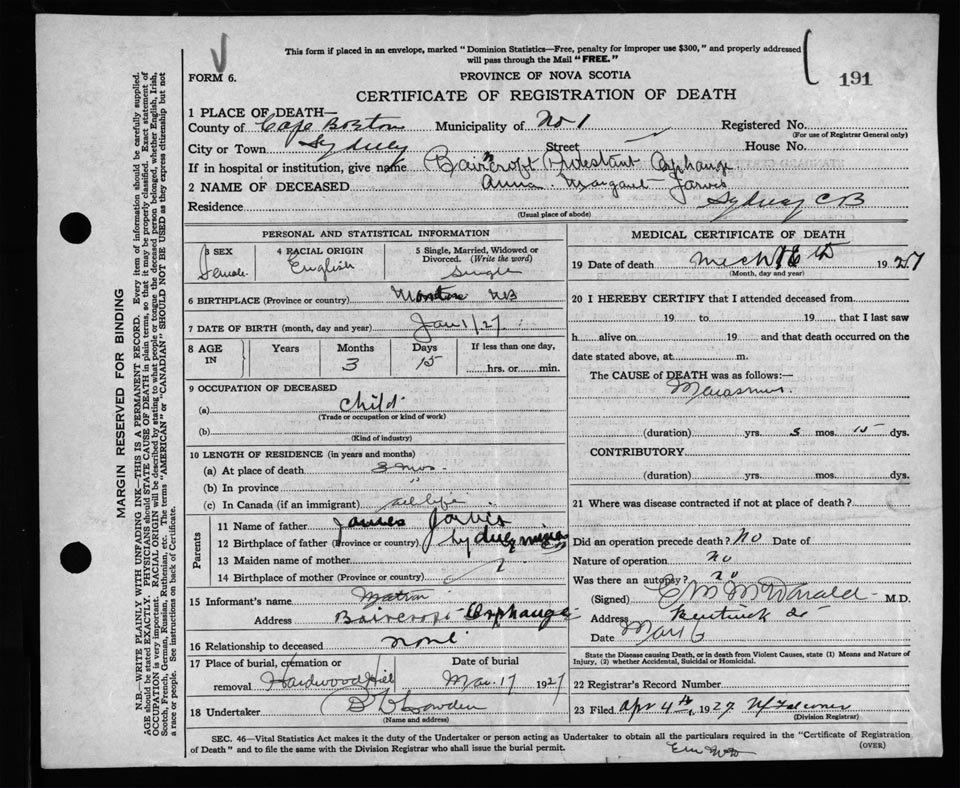 This form if placed in an envelope, marked "Dominion Statistics—Free, penalty for improper use $300," and properly addressed
will pass through the Mail "FREE."
191
FORM 6.
PROVINCE OF NOVA SCOTIA
CERTIFICATE OF REGISTRATION OF DEATH
MARGIN RESERVED FOR BINDING
N.B.—WRITE PLAINLY WITH UNFADING INK—THIS IS A PERMANENT RECORD. Every item of information should be carefully supplied.
AGE should be stated EXACTLY. PHYSICIANS should STATE CAUSE OF DEATH in plain terms, so that it may be properly classified. Exact statement of
OCCUPATION is very important. RACIAL ORIGIN will be described by stating to what people or tongue the deceased person belonged, whether English, Irish,
Scotch, French, German, Russian, Ruthenian, etc. The terms "AMERICAN" or "CANADIAN" SHOULD NOT BE USED as they express citizenship but not
a race or people. See instructions on back of Certificate.
1 PLACE OF DEATH—
County of Cape Breton Municipality of No 1 Registered No.
(For use of Registrar General only)
City or Town Sydney Street House No.
If in hospital or institution, give name Protestant Orphange
2 NAME OF DECEASED Anna Margaret Jarvis
Residence Sydney C B
(Usual place of abode)
PERSONAL AND STATISTICAL INFORMATION
3 SEX 4 RACIAL ORIGIN 5 Single, Married, Widowed or
Divorced. (Write the word)
Female English Single
6 BIRTHPLACE (Province or country) NB
7 DATE OF BIRTH (month, day and year) Jan 1/27
8 AGE IN Years Months Days If less than one day,
3 15 hrs. or min.
9 OCCUPATION OF DECEASED
(a) Child
(Trade or occupation or kind of work)
(b)
(Kind of industry)
10 LENGTH OF RESIDENCE (in years and months)
(a) At place of death 3 mos.
(b) In province "
(c) In Canada (if an immigrant) all life
Parents
11 Name of father James Jarvis
12 Birthplace of father (Province or country) Sydney mines CB
13 Maiden name of mother
14 Birthplace of mother (Province or country) ?
15 Informant's name Matron
Address Orphange
16 Relationship to deceased none
17 Place of burial, cremation or Date of burial
removal Hardwood Hill Mar. 17 1927
18 Undertaker
(Name and address)
MEDICAL CERTIFICATE OF DEATH
19 Date of death Mch 16th 1927
(Month, day and year)
20 I HEREBY CERTIFY that I attended deceased from
19 to 19 that I last saw
h alive on 19 and that death occurred on the
date stated above, at m.
The CAUSE of DEATH was as follows:—
Marasmus
(duration) yrs. 3 mos. 15 dys.
CONTRIBUTORY
(duration) yrs. mos. dys.
21 Where was disease contracted if not at place of death?
Did an operation precede death? No Date of
Nature of operation no
Was there an autopsy? no
(Signed) McDonald M.D.
Address
Date
State the Disease causing Death, or in death from Violent Causes, state (1) Means and Nature of
Injury, (2) whether Accidental, Suicidal or Homicidal.
22 Registrar's Record Number
23 Filed Apr 4th, 1927
(Division Registrar)
SEC. 46—Vital Statistics Act makes it the duty of the Undertaker or person acting as Undertaker to obtain all the particulars required in the "Certificate of Registration
of Death" and to file the same with the Division Registrar who shall issue the burial permit.
(OVER)